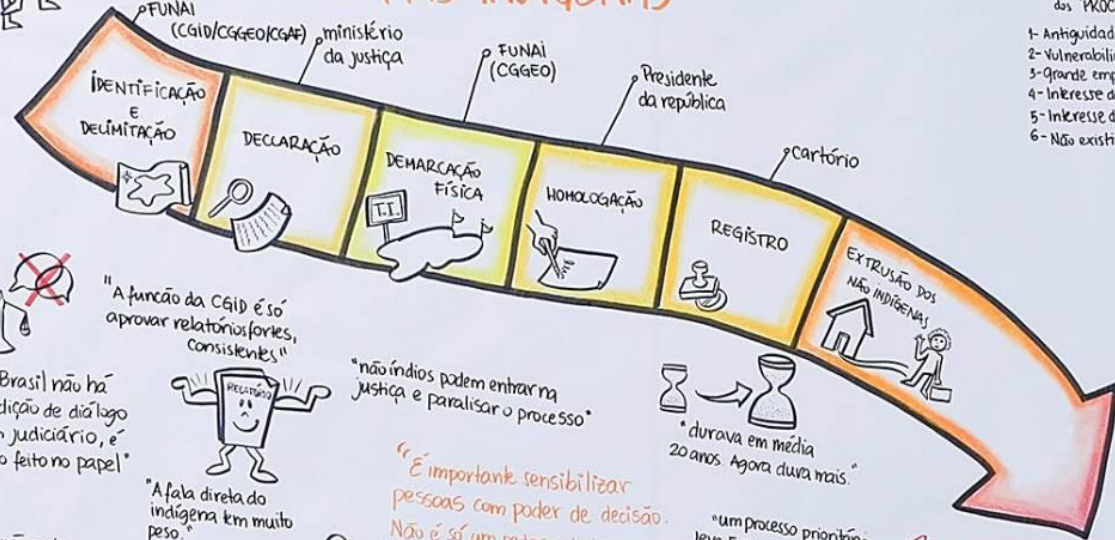 FUNAI
(CGID/CGGEO/CGAF)
ministério
da justiça
FUNAI
(CGGEO)
Presidente
da república
cartório
dos
1- Antiguidad
2- Vulnerabili
3- grande emp
4- Interesse d
5- Interesse d
6- Não existi
IDENTIFICAÇÃO
E
DELIMITAÇÃO
DECLARAÇÃO
DEMARCAÇÃO
FÍSICA
T.I.
HOMOLOGAÇÃO
REGISTRO
EXTRUSÃO DOS
NÃO INDÍGENAS
"A funcão da CGID é só
aprovar relatórios fortes,
consistentes"
RELATÓRIO
Brasil não há
dição de diálogo
judiciário, é
o feito no papel"
"A fala direta do
indígena tem muito
peso."
"não índios podem entrar na
justiça e paralisar o processo"
"É importante sensibilizar
pessoas com poder de decisão.
Não é só um
"durava em média
20 anos. Agora dura mais."
"um processo